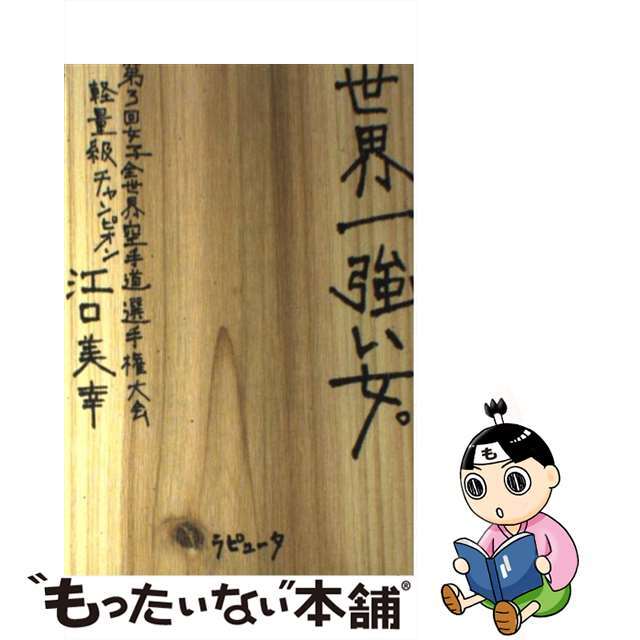 世界一強い女。
第3回女子全世界空手道選手権大会
軽量級チャンピオン
江口美幸
ラピュータ
も
"もったいない"本舗®